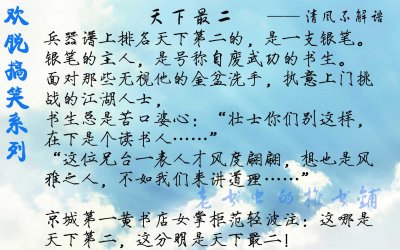 天下最二 ——清风不解语
欢脱搞笑系列
兵器谱上排名天下第二的，是一支银笔。
银笔的主人，是号称自废武功的书生。
面对那些无视他的金盆洗手，执意上门挑
战的江湖人士，
书生总是苦口婆心：“壮士你们别这样，
在下是个读书人……”
“这位兄台一表人才风度翩翩，想也是风
雅之人，不如我们来讲道理……”
京城第一黄书店女掌柜范轻波注：这哪是
天下第二，这分明是天下最二！